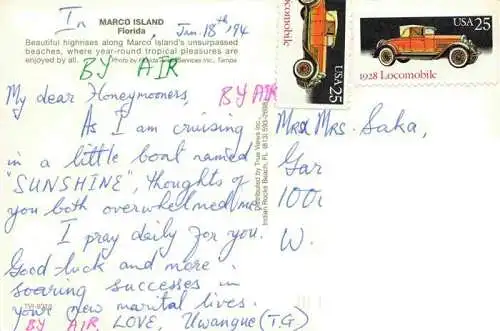 In
MARCO ISLAND
Florida
Jan. 18th, 94
Beautiful highrises along Marco Island's unsurpassed
beaches, where year-round tropical pleasures are
enjoyed by all. Photo by Florida Services Inc., Tampa
BY AIR
My dear Honeymooners,
BY AIR
As I am cruising
in a little boat named
"SUNSHINE", thoughts of
you both overwhelmed me.
I pray daily for you.
Good-luck and more
soaring successes in
your new marital lives.
BY AIR LOVE, Uwangue (T.G.)
Distributed by True Views Inc.,
Indian Rocks Beach, FL (813)
Locomobile
USA 25
USA 25
1928 Locomobile
Mr & Mrs. Saka,
Gar
100
W.